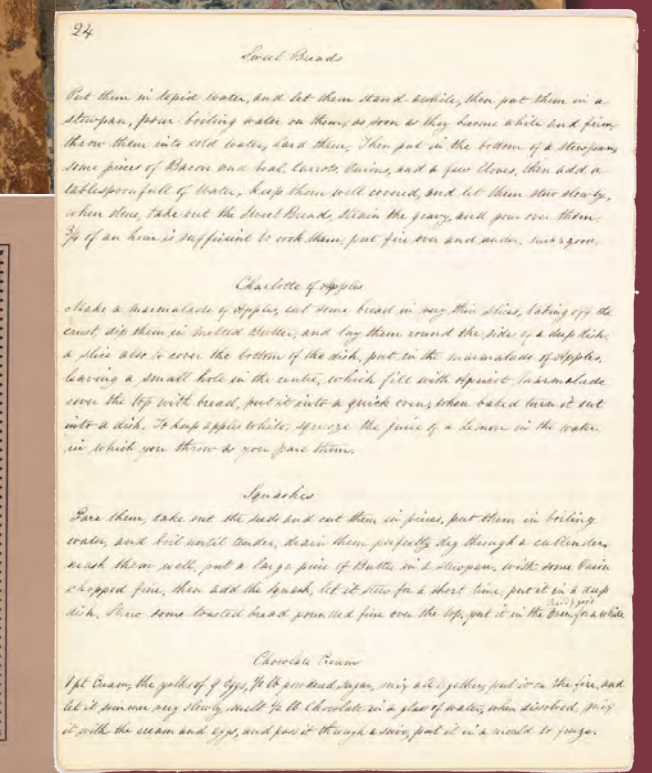 24
Sweet Breads
Put them in tepid water, and let them stand awhile, then put them in a
stewpan, pour boiling water on them, as soon as they become white and firm,
throw them into cold water, Lard them, Then put in the bottom of a stewpan,
some pieces of Bacon and Veal, Carrots, Onions, and a few Cloves, then add a
tablespoonfull of Water, Keep them well covered, and let them stew slowly,
when done, take out the Sweet Breads, strain the gravy, and pour over them,
3/4 of an hour is sufficient to cook them, put fire over and under. good.
Charlotte of Apples
Make a marmalade of Apples, cut some bread in very thin slices, taking off the
crust, dip them in melted Butter, and lay them round the sides of a deep dish,
a slice also to cover the bottom of the dish, put in the marmalade of Apples,
leaving a small hole in the centre, which fill with Apricot Marmalade
cover the top with bread, put it into a quick oven, when baked turn it out
into a dish. To keep apples white, squeeze the juice of a Lemon in the water
in which you throw as you pare them.
Squashes
Pare them, take out the seeds and cut them in pieces, put them in boiling
water, and boil until tender, drain them perfectly dry through a cullender,
mash them well, put a large piece of Butter in a stewpan, with some Onion
chopped fine, then add the Squash, let it stew for a short time, put it in a deep
dish, Strew some toasted bread pounded fine over the top, put it in the Oven for a while
good
Chocolate Cream
1 pt Cream, the yolks of 9 Eggs, 1/2 lb powdered Sugar, mix all together, put it on the fire, and
let it simmer very slowly, melt 1/2 lb Chocolate in a glass of water, when dissolved, mix
it with the cream and eggs, and pass it through a sieve, put it in a mould to freeze.